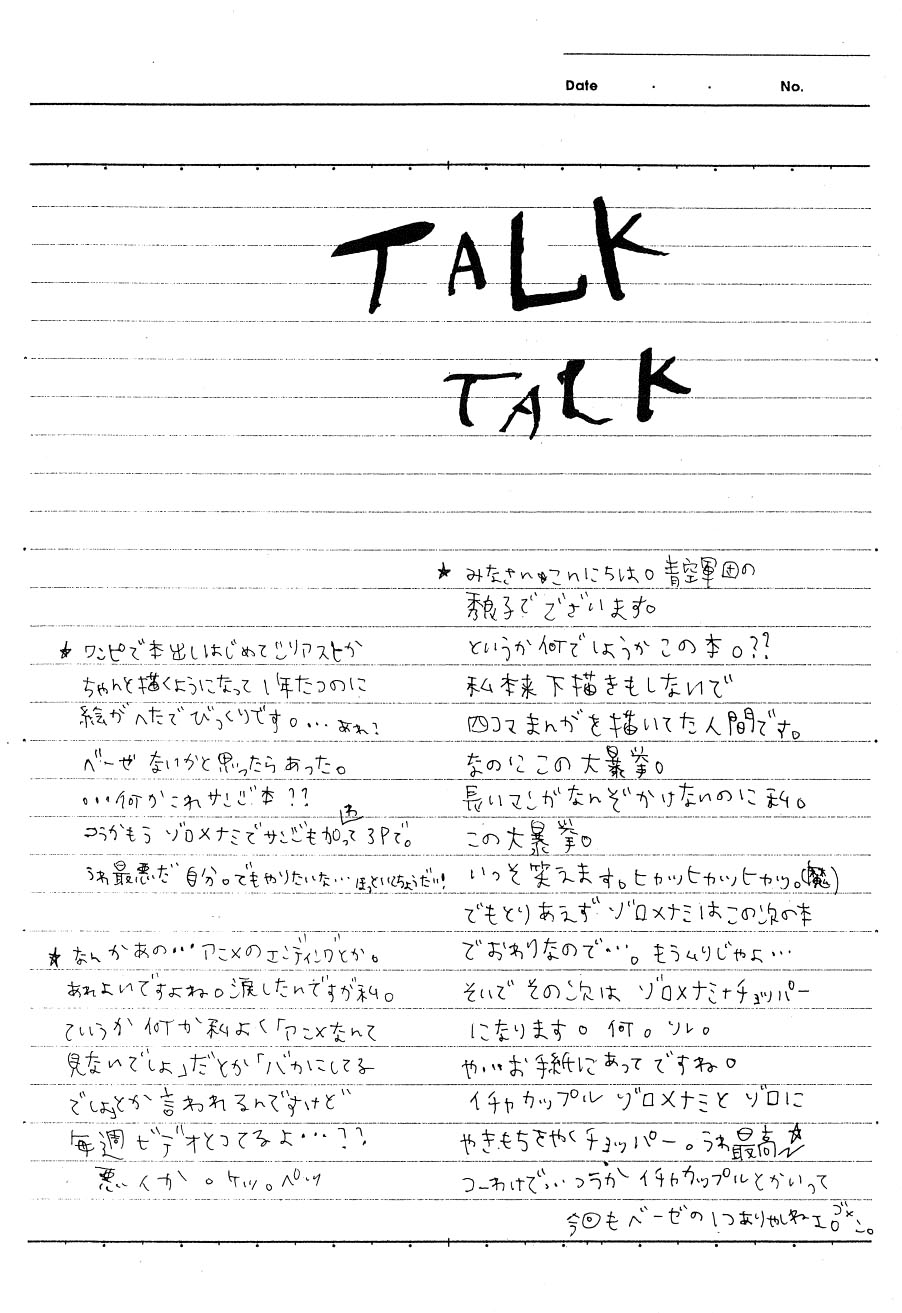 Date . . No.
TALK
TALK
★ みなさんこんにちは。青空軍団の
秀良子でございます。
というか何でしょうかこの本。??
私本来下描きもしないで
四コマまんがを描いてた人間です。
なのにこの大暴挙。
長いマンガなんぞかけないのに私。
この大暴挙。
いっそ笑えます。ヒカッヒカッヒカッ。(魔)
でもとりあえずゾロ×ナミはこの次の本
でおわりなので…。もうムリじゃよ…
そいでその次はゾロ×ナミ+チョッパー
になります。何。ソレ。
や…お手紙にあってですね。
イチャカップルゾロ×ナミとゾロに
やきもちをやくチョッパー。うわ最高☆
つーわけで…つうかイチャカップルとかいって
今回もベーゼの1つありゃしねエ。ゴメン。
★ ワンピで本出しはじめてシリアスとか
ちゃんと描くようになって1年たつのに
絵がへたでびっくりです。…あれ?
ベーゼないかと思ったらあった。
…何かこれサンジ本??
つうかもうゾロ×ナミでサンジも加わって3Pで。
うわ最悪だ自分。でもやりたいな…ほっといとくちょうだい!
★ なんかあの…アニメのエンディングとか。
あれよいですよね。涙したんですが私。
ていうか何か私よく「アニメなんて
見ないでしょ」だとか「バカにしてる
でしょ」とか言われるんですけど
毎週ビデオとってるよ…??
悪いか。ケッ。ペッ